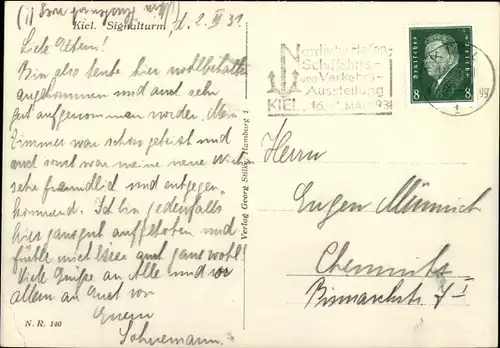 Kiel. Signalturm
d. 2. III 31
Liebe Eltern!
Bin also heute hier wohlbehalten
angekommen und auch sehr
gut aufgenommen worden. Mein
Zimmer war schon geheizt und
auch sonst war meine neue Wirtin
sehr freundlich und entgegen-
kommend. Ich bin jedenfalls
hier ganz gut aufgehoben und
fühle mich hier auch ganz wohl!
Viele Grüße an Alle und vor
allem an Euch von
Eurem
Sohnemann.
N. R. 140
Verlag Georg Stilke, Hamburg 1
Nordische Hafen-
Schiffahrts-
und Verkehrs-
Ausstellung
KIEL. MAI 1931
Deutsches Reich
8 8
Herrn
Eugen Münnich
Chemnitz
Bismarckstr. 7 I